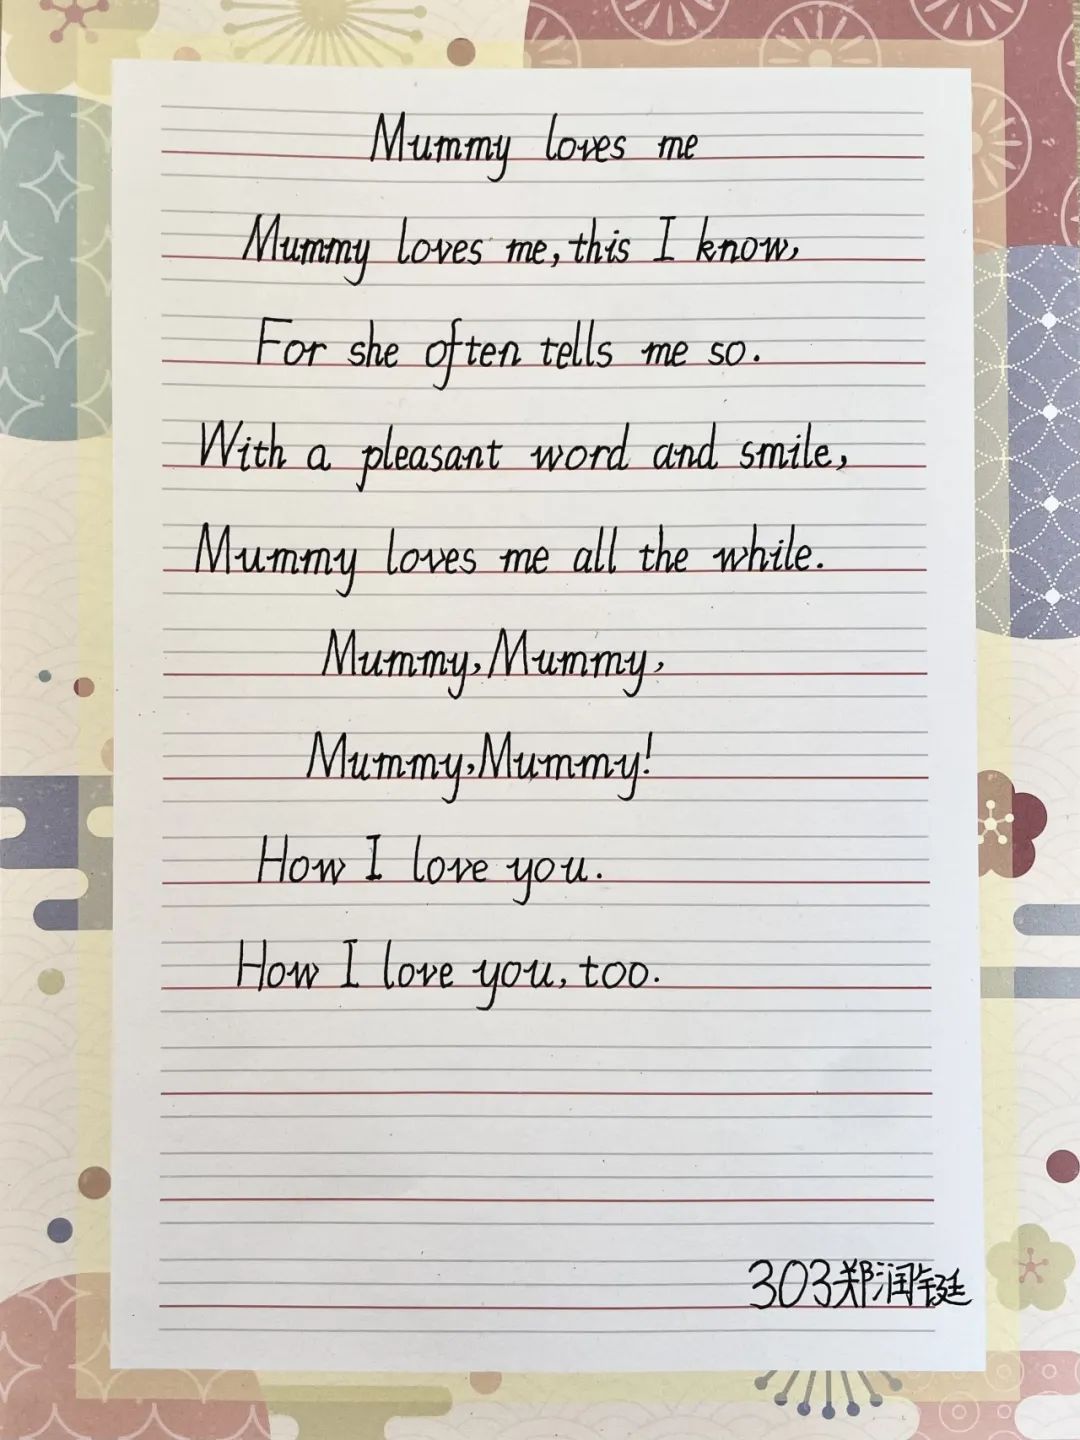 Mummy loves me
Mummy loves me, this I know,
For she often tells me so.
With a pleasant word and smile,
Mummy loves me all the while.
Mummy, Mummy,
Mummy, Mummy!
How I love you.
How I love you, too.
303郑润铤